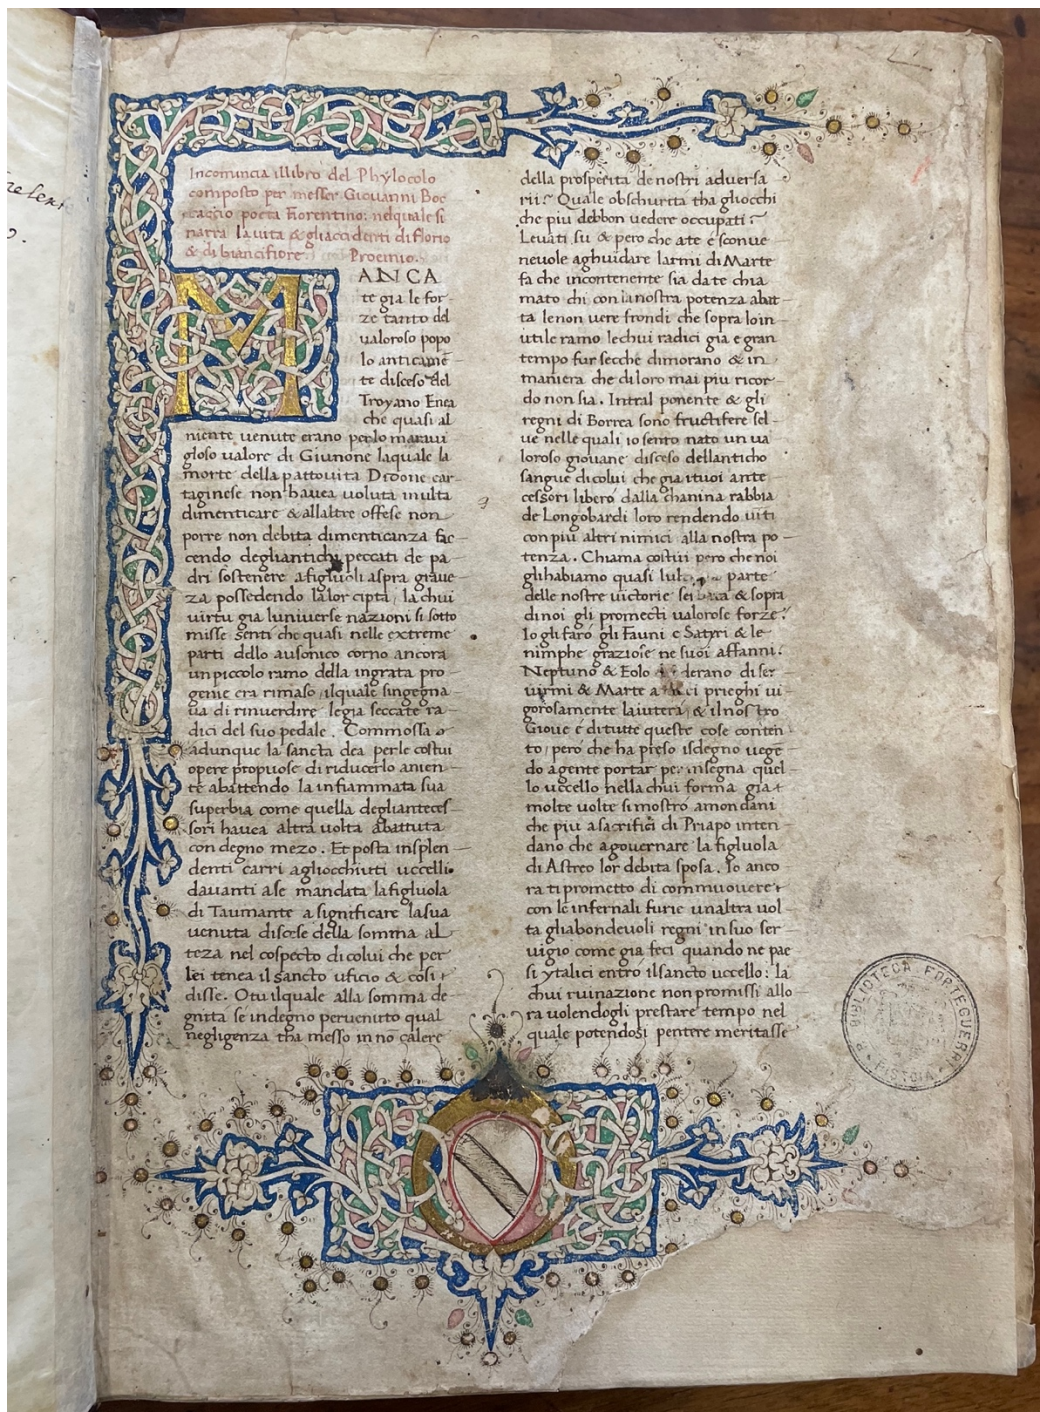 Incomincia illibro del Phylocolo
composto per messer Giovanni Boc
caccio poeta fiorentino: nelquale si
narra la vita & gliaccidenti di florio
& di biancifiore Proemio.
MANCA
te gia le for-
ze tanto del
valoroso popo
lo anticamē
te disceso del
Troyano Enea
che quasi al
niente venute erano perlo maravi
glioso valore di Giunone laquale la
morte della pattovita Didone car-
taginese non havea voluta inulta
dimenticare & allaltre offese non
porre non debita dimenticanza fac
cendo degliantichi peccati de pa-
dri sostenere a figliuoli aspra grave
za possedendo la lor cipta, la chui
virtu gia luniverse nazioni si sotto
misse senti che quasi nelle extreme
parti dello ausonico corno ancora
un piccolo ramo della ingrata pro-
genie era rimaso, ilquale singegna-
va di rinverdire legia seccate ra-
dici del suo pedale. Commossa
adunque la sancta dea perle costui
opere propuose di riducerlo anien-
te abattendo la infiammata sua
superbia come quella deglianteces-
sori havea altra volta abattuta
con degno mezo. Et posta insplen-
denti carri agliocchiuti uccelli
davanti ase mandata la figluola
di Taumante a significare la sua
venuta discese della somma al
teza nel cospecto di colui che per
lei tenea il sancto uficio & cosi
disse. O tu ilquale alla somma de-
gnita se indegno pervenuto qual
negligenza tha messo in nō calere
della prosperita de nostri adversa
rii? Quale obschurita tha gliocchi
che piu debbon vedere occupati?
Levati su & pero che ate é sconve
nevole aghuidare larmi di Marte
fa che incontenente sia da te chia
mato chi con la nostra potenza abat
ta le non vere frondi che sopra loin
utile ramo le chui radici gia e gran
tempo fur secche dimorano & in
maniera che di loro mai piu ricor-
do non sia. Intral ponente & gli
regni di Borrea sono fructifere sel-
ve nelle quali io sento nato un va
loroso giovane disceso dellanticho
sangue di colui che gia ituoi ante
cessori liberó dalla chanina rabbia
de Longobardi loro rendendo viti
con piu altri nimici alla nostra po-
tenza. Chiama costui pero che noi
glihabiamo quasi parte
delle nostre victorie & sopra
di noi gli promecti valorose forze.
Io gli faró gli Fauni e Satyri & le
nimphe graziose ne suoi affanni.
Neptuno & Eolo derano di ser
virmi & Marte a prieghi vi
gorosamente laiutera, & il nostro
Giove é ditutte queste cose conten
to, pero che ha preso isdegno vege
do agente portar per insegna quel
lo uccello nella chui forma gia
molte volte si mostro amondani
che piu a sacrifici di Priapo inten
dano che agovernare la figluola
di Astreo lor debita sposa. Io anco
ra ti prometto di commuovere
con le infernali furie unaltra vol
ta gliabondevoli regni in suo ser
vigio come gia feci quando ne pae
si ytalici entro il sancto uccello: la
chui ruinazione non promissi allo
ra volendogli prestare tempo nel
quale potendosi pentere meritasse
BIBLIOTECA FORTEGUERRI
PISTOIA